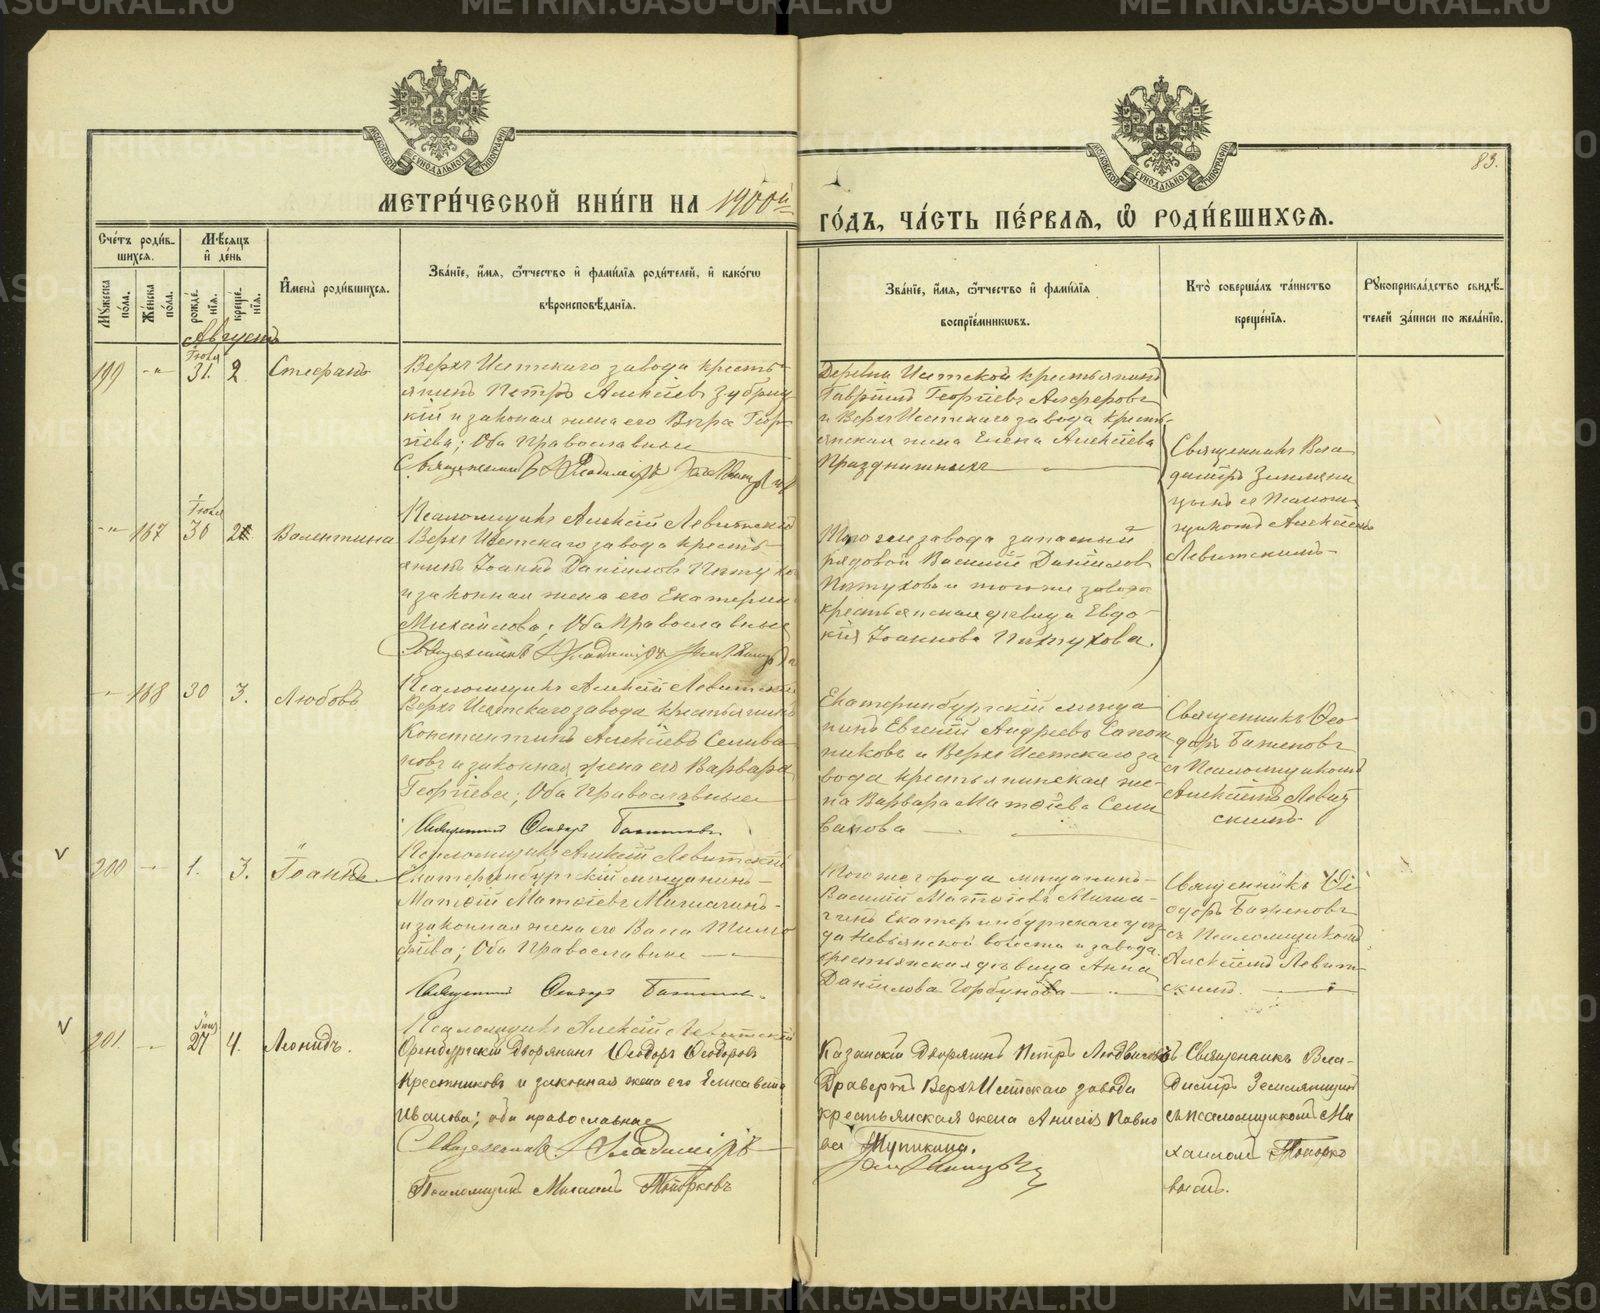 МЕТРИ́ЧЕСКОЙ КНИ́ГИ НА 1900й
ГО́ДЪ, ЧА́СТЬ ПЕ́РВАЯ, Ѡ РОДИ́ВШИХСЯ.
83.
Сче́тъ роди́в-
шихся.
Мѣсяцъ
и де́нь
Мꙋжеска
по́ла.
Же́нска
по́ла.
рожде́-
нїя.
креще́-
нїя.
Имена̀ роди́вшихся.
Зва́нїе, и́мя, о́тчество и фами́лїя роди́телей, и како́гѡ
вѣроисповѣ́данїя.
Зва́нїе, и́мя, о́тчество и фами́лїя
воспрїе́мникѡвъ.
Кто̀ соверша́лъ та́инство
креще́нїя.
Рꙋкоприкла́дство свидѣ́-
телей за́писи по жела́нїю.
Августъ
199
Іюля
31.
2
Стефанъ
Верхъ Исетскаго завода кресть-
янинъ Петръ Алексѣевъ Зубриц-
кій и законая жена его Вѣра Геор-
гіева; Оба Православные
Священникъ Владиміръ Земляницынъ
Псаломщикъ Алексій Левитскій
Деревни Исетской крестьянинъ
Гавріилъ Георгіевъ Алферовъ
и Верхъ Исетскаго завода кресть-
янская жена Елена Алексѣева
Праздничныхъ
Священникъ Вла-
диміръ Земляни-
цынъ съ Псалом-
щикомъ Алексѣемъ
Левитскимъ
167
Іюля
30
2
Валентина
Верхъ Исетскаго завода кресть-
янинъ Іоаннъ Даніиловъ Пѣтухов
и законная жена его Екатерина
Михайлова; Оба Православные
Священникъ Владиміръ Земляницынъ
Псаломщикъ Алексій Левитскій
Того же завода запасный
рядовой Василій Даніиловъ
Пѣтуховъ и тогоже завода
крестьянская дѣвица Евдо-
кія Іоаннова Пѣтухова.
168
30
3.
Любовь
Верхъ Исетскаго завода крестьянинъ
Константинъ Алексѣевъ Селива-
новъ и законная жена его Варвара
Георгіева; Оба Православные
Священникъ Ѳеодоръ Баженовъ
Псаломщикъ Алексій Левитскій
Екатеринбургскій мѣща-
нинъ Евгеній Андреевъ Сапож-
никовъ и Верхъ Исетскаго за-
вода крестьянинская же-
на Варвара Матѳіева Сели-
ванова
Священникъ Ѳео-
доръ Баженовъ
съ Псаломщикомъ
Алексѣемъ Левит-
скимъ
200
1.
3.
Іоаннъ
Екатеринбургскій мѣщанинъ
Матѳій Матѳіевъ
и законная жена его Васса Тимо-
ѳеева; Оба Православные
Священникъ Ѳеодоръ Баженовъ.
Псаломщикъ Алексій Левитскій
Того же города мѣщанинъ
Василій Матѳіевъ
Екатеринбургскаго уѣз-
да Невьянской волости и завода
крестьянская дѣвица Анна
Даніилова Горбунова
Священникъ Ѳе-
одоръ Баженовъ
съ Псаломщикомъ
Алексѣемъ Левит-
скимъ.
201.
Іюля
27
4.
Леонидъ.
Оренбургскій Дворянинъ Ѳеодоръ Ѳеодоровъ
Крестниковъ и законная жена его Елисавета
Иванова; оба православные
Священникъ Владиміръ Земляницынъ
Псаломщикъ Михаилъ Топорковъ
Казанскій Дворянинъ Петръ Людвиговъ
Дравертъ Верхъ-Исетскаго завода
крестьянская жена Анисія Павло-
ва Тупикина.
Священникъ Вла-
диміръ Земляницынъ
съ псаломщикомъ Ми-
хаиломъ Топорко-
вымъ.
METRIKI.GASO-URAL.RU